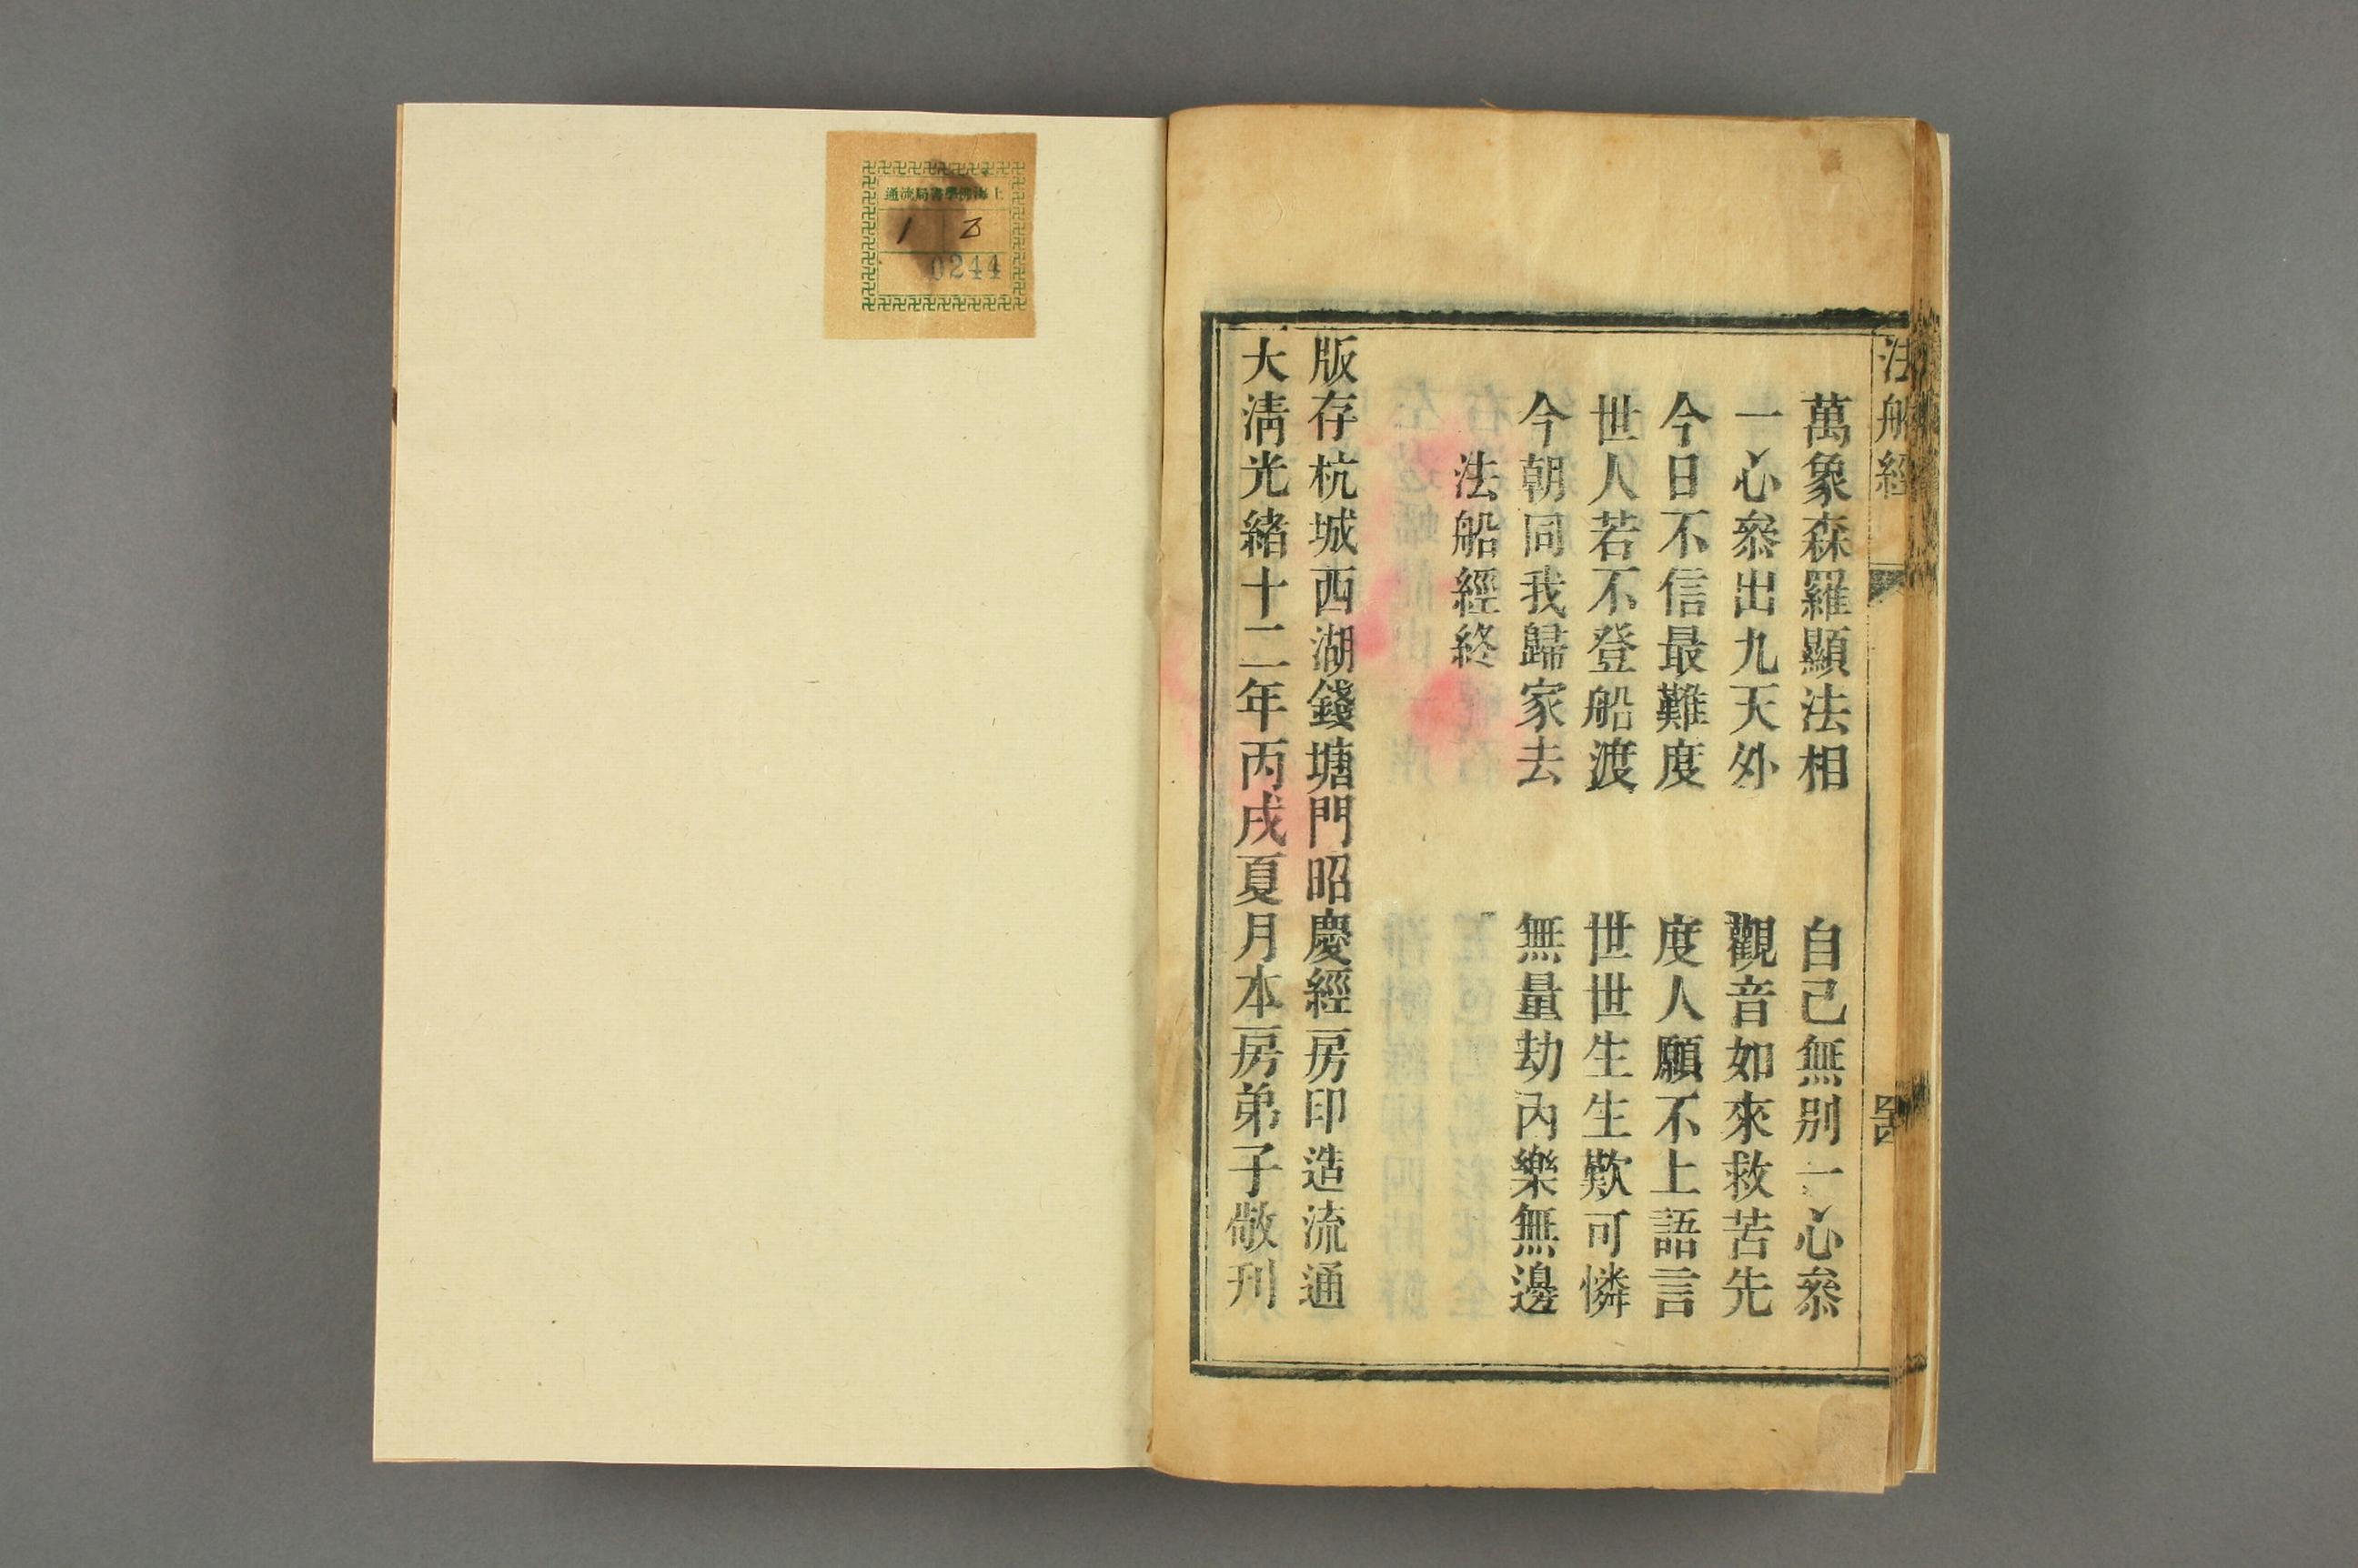 法船經
萬象森羅顯法相　自己無別一心叅
一心叅出九天外　觀音如來救苦先
今日不信最難度　度人願不上語言
世人若不登船渡　世世生生歎可憐
今朝同我歸家去　無量劫內樂無邊
法船經終
版存杭城西湖錢塘門昭慶經房印造流通
大清光緒十二年丙戌夏月本房弟子敬刊
上海佛學書局流通
1
0244